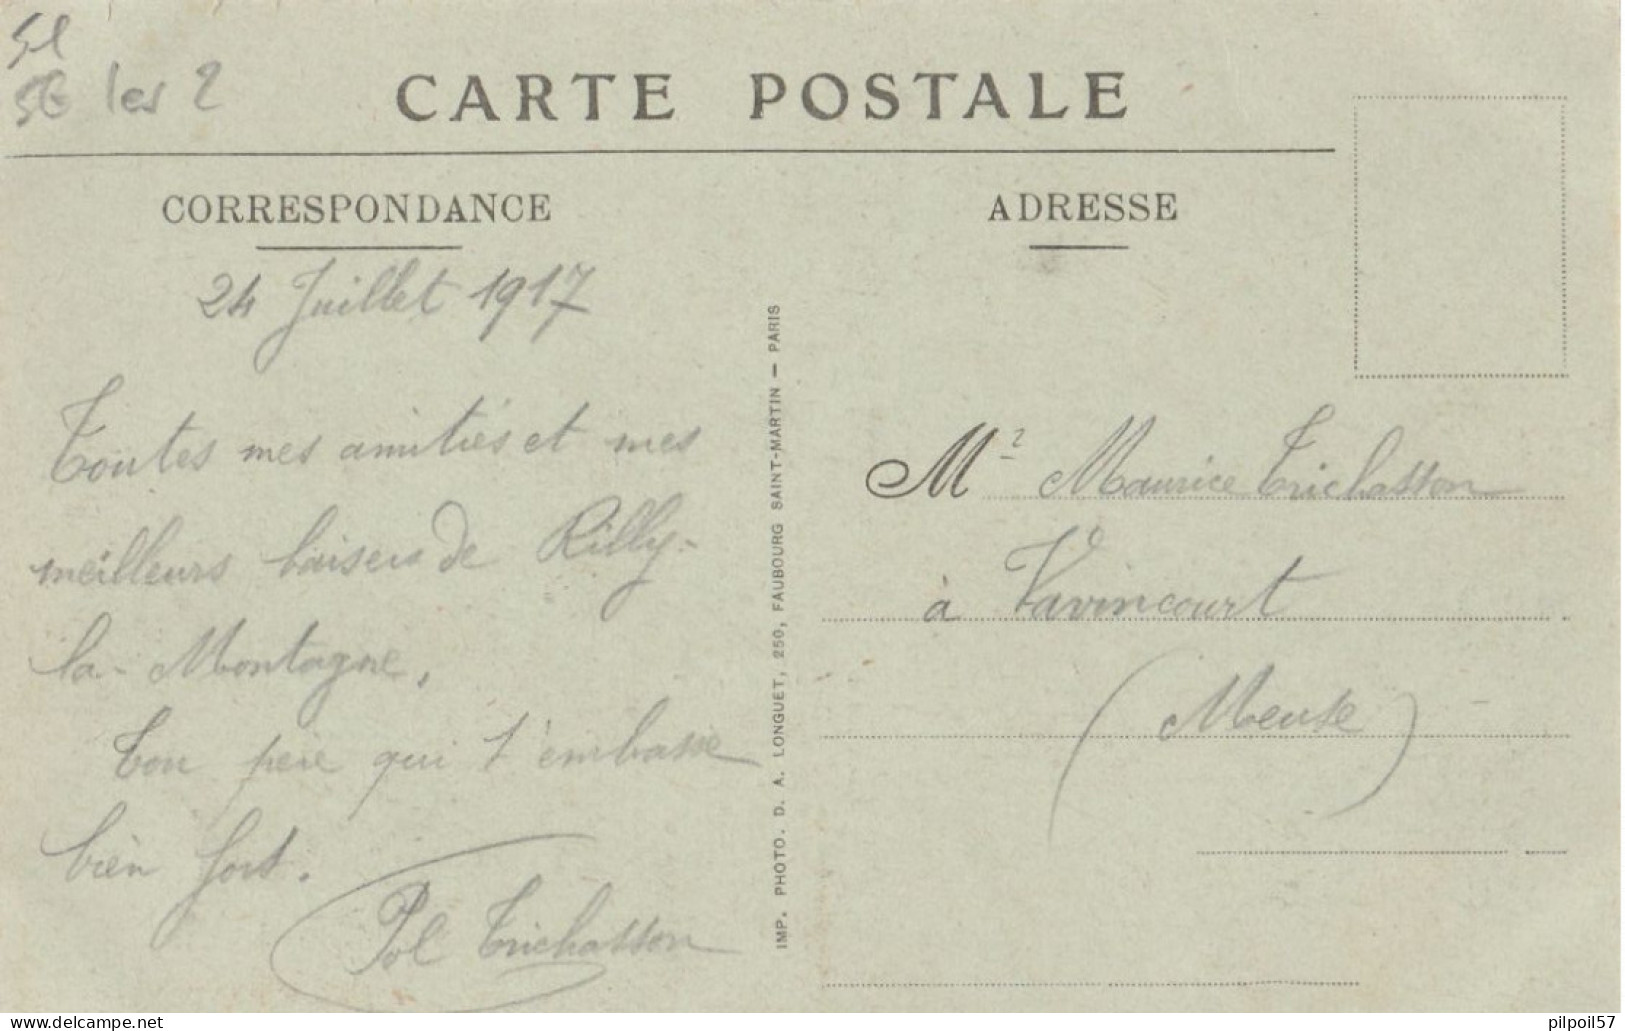 51
5€ les 2
CARTE POSTALE
CORRESPONDANCE
24 Juillet 1917
Toutes mes amitiés et mes
meilleurs baisers de Rilly-
la-Montagne.
Ton père qui t'embasse
bien fort.
Pol Trichasson
IMP. PHOTO. D. A. LONGUET, 250, FAUBOURG SAINT-MARTIN — PARIS
ADRESSE
Mr Maurice Trichasson
à Vavincourt
(Meuse)
pilpoil57